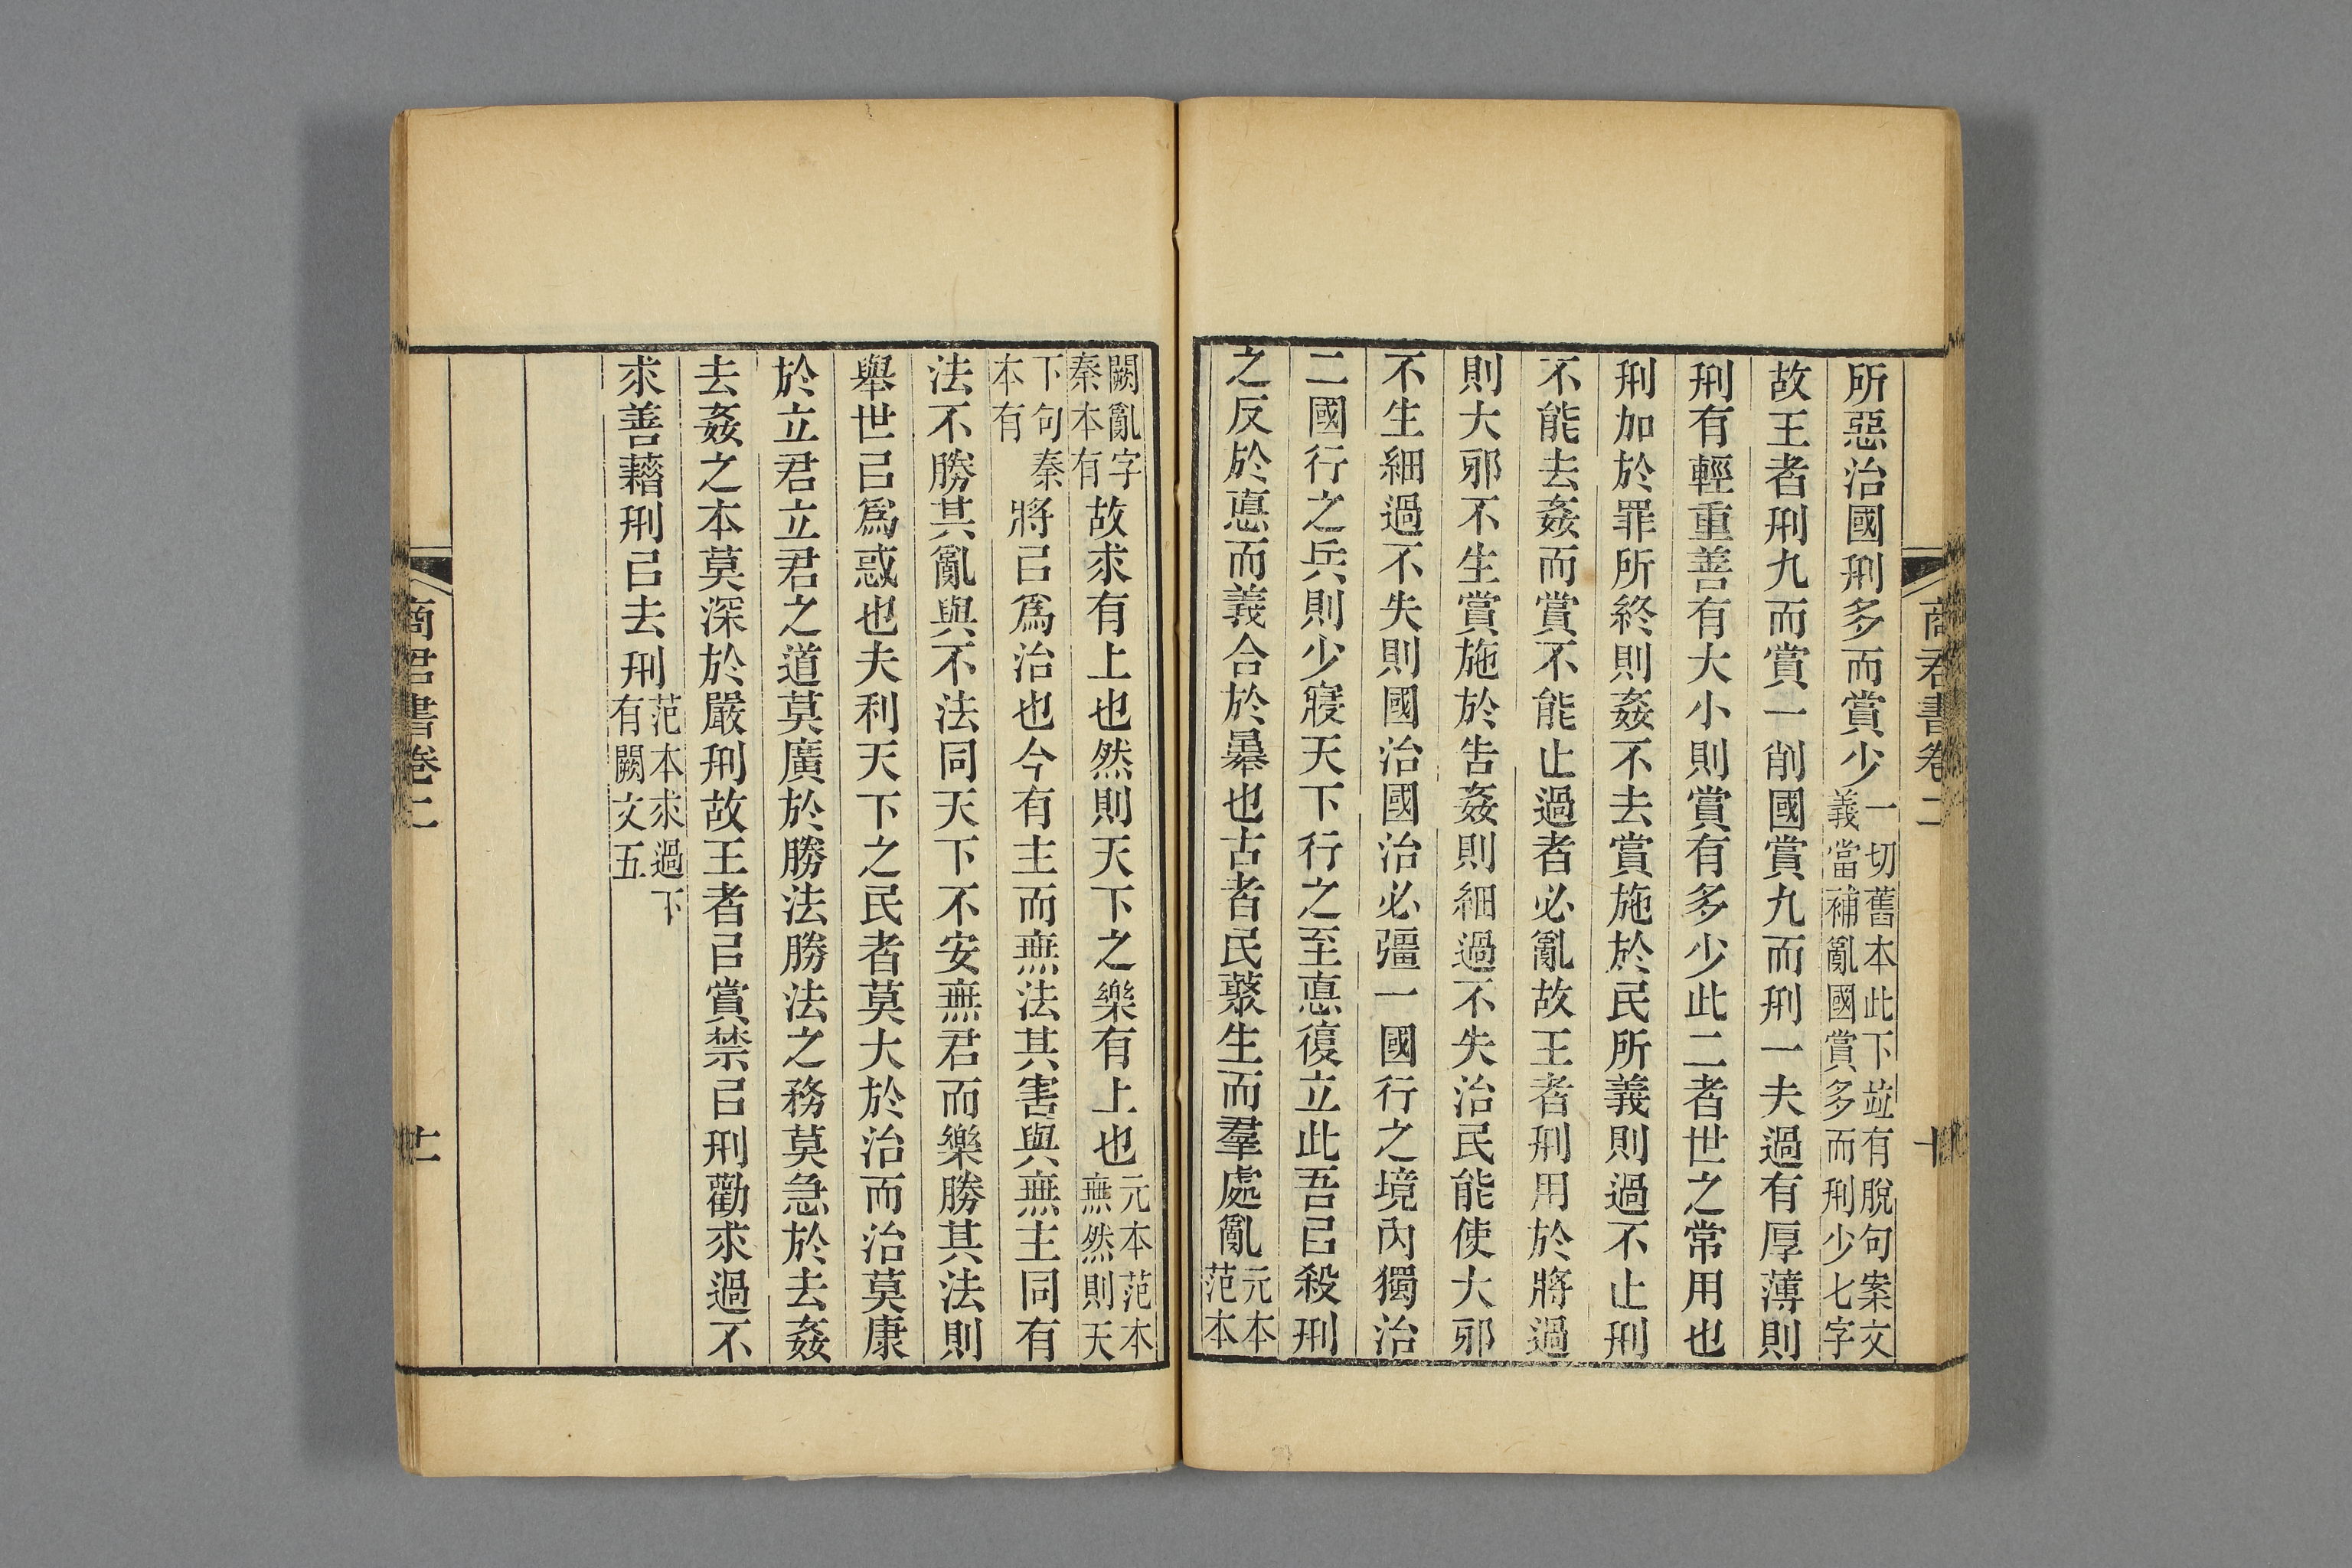 商君書卷二
十
所惡治國刑多而賞少一切舊本此下竝有脫句案文義當補亂國賞多而刑少七字
故王者刑九而賞一削國賞九而刑一夫過有厚薄則
刑有輕重善有大小則賞有多少此二者世之常用也
刑加於罪所終則姦不去賞施於民所義則過不止刑
不能去姦而賞不能止過者必亂故王者刑用於將過
則大邪不生賞施於告姦則細過不失治民能使大邪
不生細過不失則國治國治必彊一國行之境內獨治
二國行之兵則少寢天下行之至悳復立此吾㠯殺刑
之反於悳而義合於㬥也古者民藂生而羣處亂元本范本
闕亂字秦本有故求有上也然則天下之樂有上也元本范本無然則天
下句秦本有將㠯爲治也今有主而無法其害與無主同有
法不勝其亂與不法同天下不安無君而樂勝其法則
舉世㠯爲惑也夫利天下之民者莫大於治而治莫康
於立君立君之道莫廣於勝法勝法之務莫急於去姦
去姦之本莫深於嚴刑故王者㠯賞禁㠯刑勸求過不
求善藉刑㠯去刑范本求過下有闕文五
商君書卷二
十一